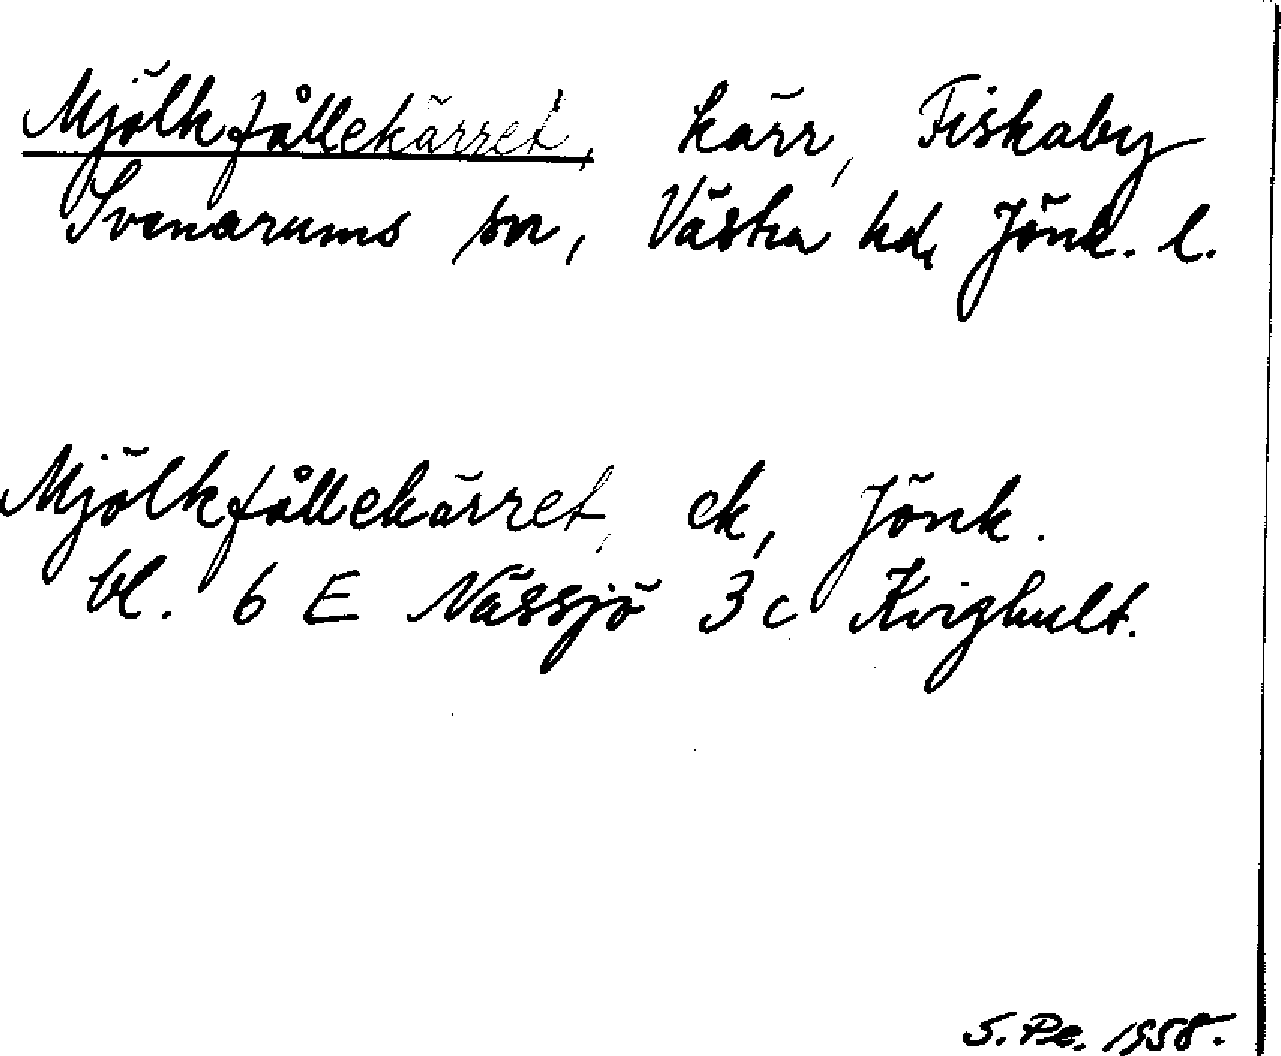 Mjölkfållekärret, kärr, Fiskaby
Svenarums sn, Västra hd, Jönk. l.
Mjölkfållekärret, ek, Jönk.
bl. 6 E Nässjö 3 c Kvighult.
S. Pe. 1958.